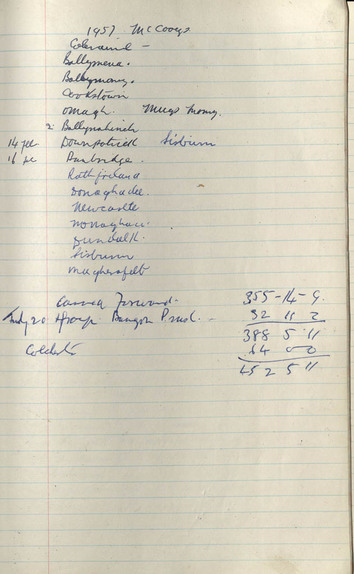 1957 McCooys
Coleraine -
Ballymena.
Ballymoney.
Cookstown
omagh. Mugs money.
2 Ballynahinch
14 fee Downpatrick Lisburn
16 fee Banbridge.
Rathfriland
Donaghadee.
Newcastle
monaghan.
Dundalk.
Lisburn
magherafelt
Forward. 355-14-9.
July 20 Bangor 32 11 2
388 5 11
64 0 0
452 5 11